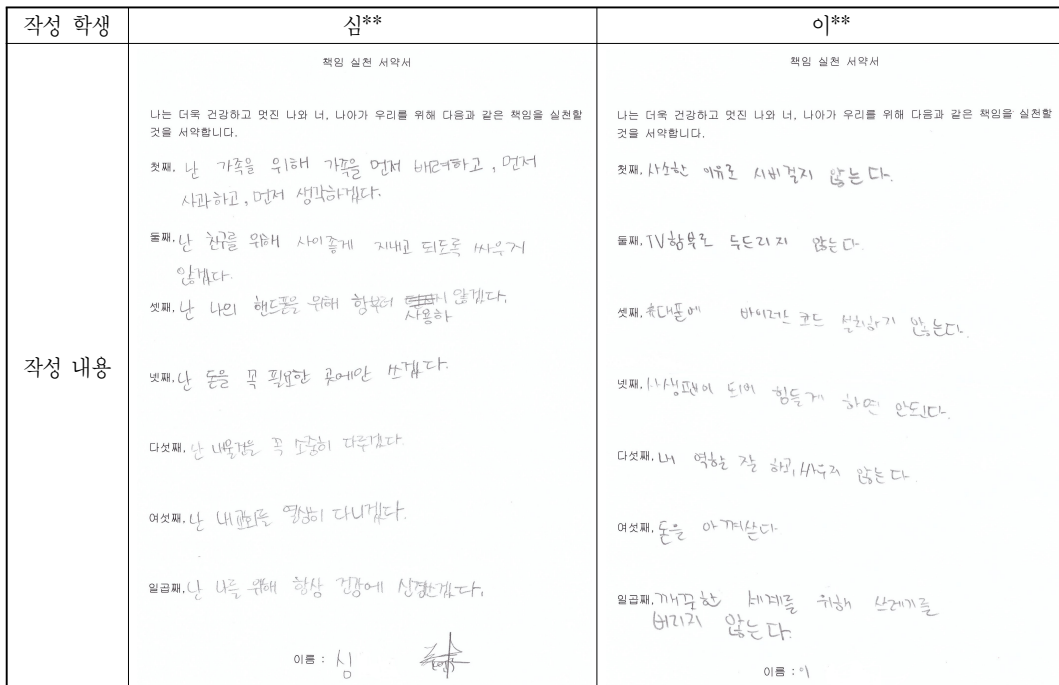 작성 학생
심**
이**
작성 내용
책임 실천 서약서
나는 더욱 건강하고 멋진 나와 너, 나아가 우리를 위해 다음과 같은 책임을 실천할
것을 서약합니다.
첫째. 난 가족을 위해 가족을 먼저 배려하고, 먼저
사과하고, 먼저 생각하겠다.
둘째. 난 친구를 위해 사이좋게 지내고 되도록 싸우지
않겠다.
셋째. 난 나의 핸드폰을 위해 함부러 사용하지 않겠다.
넷째. 난 돈을 꼭 필요한 곳에만 쓰겠다.
다섯째. 난 내물건을 꼭 소중히 다루겠다.
여섯째. 난 내교회를 열심히 다니겠다.
일곱째. 난 나를 위해 항상 건강에 신경쓰겠다.
이름 : 심
책임 실천 서약서
나는 더욱 건강하고 멋진 나와 너, 나아가 우리를 위해 다음과 같은 책임을 실천할
것을 서약합니다.
첫째. 사소한 이유로 시비걸지 않는다.
둘째. TV함부로 두드리지 않는다.
셋째. 휴대폰에 바이러스 코드 설치하기 않는다.
넷째. 사생팬이 되어 힘들게 하면 안된다.
다섯째. 내 역할 잘 하고, 싸우지 않는다.
여섯째. 돈을 아껴쓴다
일곱째. 깨끗한 세계를 위해 쓰레기를
버리지 않는다.
이름 : 이